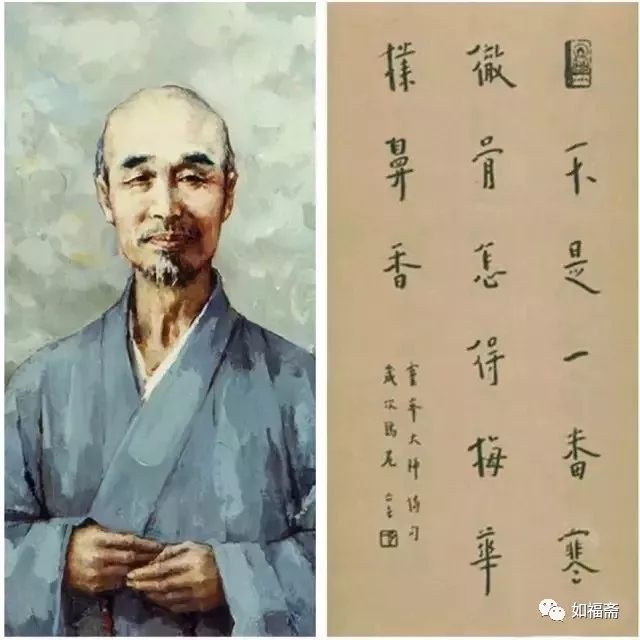 不是一番寒
徹骨怎得梅華
撲鼻香
大師句
歲次
如福斋